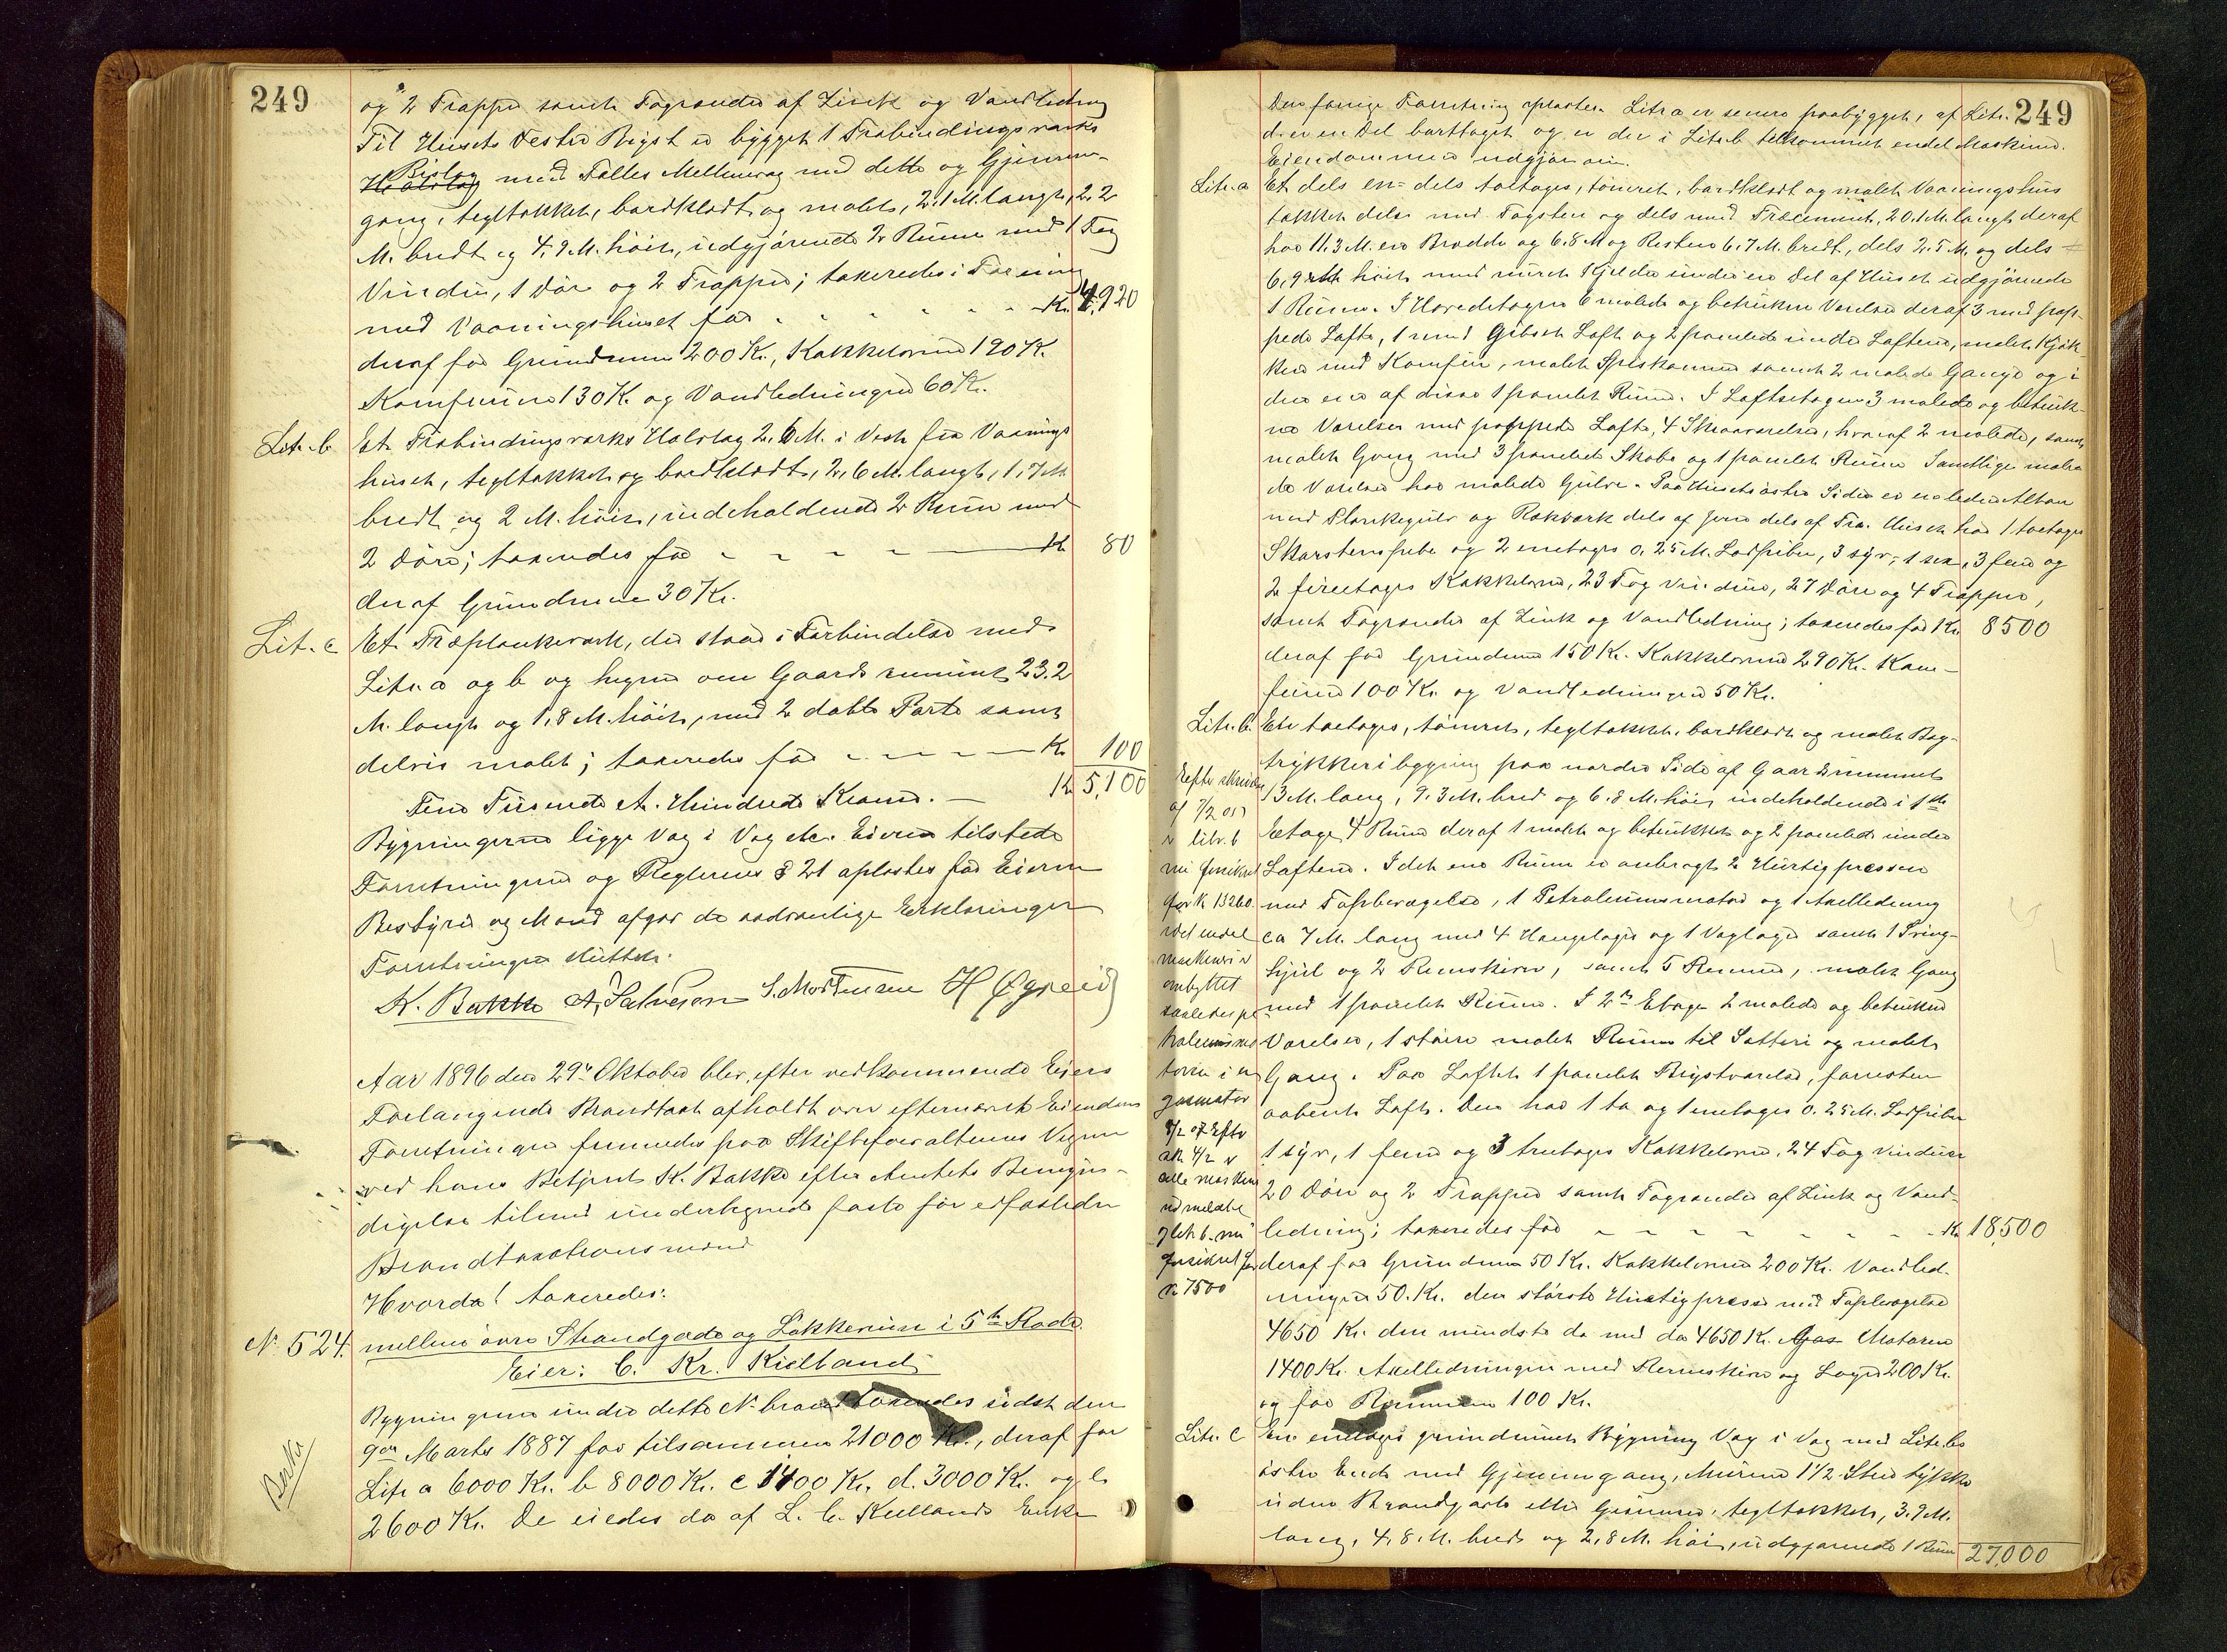 249
og 2 Trapper samt Tagrender af Zink og Vandledning
Til Husets Vestre Bigst er bygget 1 Træbindingsværks
Bislag
med Fælles Mellemvæg med dette og Gjennem-
gang, tegltækket, bordklædt og malet, 2,1 M. langt, 2,2
M. bredt og 4,9 M. høit, udgjørende 2 Rum med 1 Fag
Vindu, 1 Dør og 2 Trapper; taxeredes i Forening
med Vaaningshuset for - - - - - Kr. 4,920
deraf for Grundmur 200 Kr., Kakkelovne 190 Kr.
Komfurene 130 K. og Vandledningen 60 Kr.
Litr. b Et Træbindingsværks Halvtag 2,6 M. i Vest fra Vaanings
huset, tegltækket og bordklædt, 2,6 M. langt, 1,7 M.
bredt og 2 M. høit, indeholdende 2 Rum med
2 Døre; taxeredes for - - - - Kr 80
deraf Grundmur 30 Kr.
Lit. c Et Træplankeværk, der staar i Forbindelse med
Litr. a og b og hegner om Gaardsrummet 23.2
M. langt og 1,8 M. høit, med 2 dobte Porte samt
delvis malet; taxeredes for - - - - Kr 100
Fem Tusende Et Hundrede Kroner. - Kr 5,100
Bygningerne ligge Væg i Væg etc. Eieren tilstede
Forretningen og Reglernes § 21 oplæstes for Eieren
Bestyrer og Mænd afgav de sædvanlige Erklæringer
Forretningen sluttet.
K. Bakke A. Salvesen S. Mortensen H Øgreid
Aar 1896 den 29de Oktober blev, efter vedkommende Eiers
Forlangende Brandtaxt afholdt over efternævnte Eiendom
Forretningen fremmedes paa Skifteforvalterens Vegne
ved hans Betjent K. Bakke efter Amtets Bemyn-
digelse tilmed undertegnede faste før edfæstede
Brandtaxationsmænd
Hvorda! taxeredes:
No. 524. mellem øvre Strandgade og Løkkeveien i 5te Rode.
Eier: C. Kr. Kielland
Bygningerne under dette No. brandtaxeredes sidst den
9de Marts 1887 for tilsammen 21000 Kr., deraf for
Litr a 6000 Kr. b 8000 Kr. c 1400 Kr. d. 3000 Kr. og e
2600 Kr. De eiedes da af L. C. Kiellands Enke
249
Den forrige Forretning oplæstes. Litr a er senere paabygget, af Litr.
d. er en Del borttaget og er der i Litr. b tilkommet endel Maskiner.
Eiendommen udgjør nu.
Litr. a Et dels en- dels toetages, tømret, bordklædt og malet Vaaningshus
tækket dels med Tagsten og dels med Træcement, 20.1 M. langt deraf
har 11.3 M. en Bredde og 6.8 M og Resten 6.7 M. bredt, dels 2.5 M. og dels
6,9 høit med muret Kjelder under en Del af Huset udgjørende
1 Rum. I Hovedetagen 6 malede og betrukne Værelser deraf 3 med pap-
pede Lofte, 1 med Gibset Loft og 2 panelede under Loftene, malet Kjøk-
ken med Komfur, malet Spiskammer samt 2 malede Gange og i
den ene af disse 1 panelet Rum. I Loftsetagen 3 malede og betruk-
ne Værelser med pappede Lofte, 4 Skraaværelser, hvoraf 2 malede, samt
malet Gang med 3 panelede Skabe og 1 panelet Rum Samtlige male-
de Værelser har malede Gulve. Paa Husets østre Side er en liden Altan
med Plankegulv og Rækværk dels af Jern dels af Træ. Huset har 1 toetages
Skorstenspibe og 2 enetages 0,25 M. Lodpiber, 3 syv-, 1 sex, 3 fem og
2 fireetages Kakkelovne, 23 Fag Vinduer, 27 Døre og 4 Trapper,
samt Tagrender af Zink og Vandledning; taxeredes for Kr. 8500
deraf for Grundmur 150 Kr. Kakkelovne 290 Kr. Kom-
furen 100 Kr. og Vandledningen 50 Kr.
Litr. b. En toetages, tømret, tegltækket, bordklædt og malet Bog-
trykkeribygning paa nordre Side af Gaardsrummet
13 M. lang, 9.3 M. bred og 6.8 M. høi, indeholdende i 1ste
Etage 4 Rum deraf 1 malet og betrukket og 2 panelede under
Loftene. I det ene Rum er anbragt 2 Hurtigpresser
med Tapbevægelse, 1 Petroleumsmotor og 1 Axelledning
ca 7 M. lang med 4 Hængelager og 1 Væglager samt 1 Sving-
hjul og 2 Remskiver, samt 5 Remme, malet Gang
med 1 panelet Rum. I 2den Etage 2 malede og betrukne
Værelser, 1 større malet Rum til Sætteri og malet
Gang. Paa Loftet 1 panelet Kvistværelse, forresten
aabent Loft. Den har 1 to og 1 enetages 0,25 M. Lodpiber
1 syv, 1 fem og 3 treetages Kakkelovne, 24 Fag Vinduer
20 Døre og 2 Trapper samt Tagrender af Zink og Vand-
ledning; taxeredes for - - - - - - - Kr. 18,500
deraf for Grundmur 50 Kr. Kakkelovne 200 Kr. Vandled-
ningen 50. Kr. den største Hurtigpresse med Tapbevægelse
4650 Kr. den mindste do med do 4650 Kr. Gas Motoren
1400 Kr. Axelledningen med Remskiver og Lager 200 Kr.
og for Remmene 100 Kr.
Efter skrivelse
af 7/2 01
er litr. b
nu forsikret
for K 13260
idet endel
maskiner er
ombyttet
saaledes pe-
troleumsmo
toren i en
gasmotor
8/2 07 Efter
alle maskiner
udmeldte
og litr b. nu
forsikret for
Kr 7500
Litr. C En enetages grundmuret Bygning Væg i Væg med Litr. bs
østre Ende med Gjennemgang, Murene 1 1/2 Sten tykke
uden Brandgavle eller Gesimser, tegltækket, 3.7 M.
lang, 4,8 M. bred og 2,8 M. høi, udgjørende 1 Rum
27,000